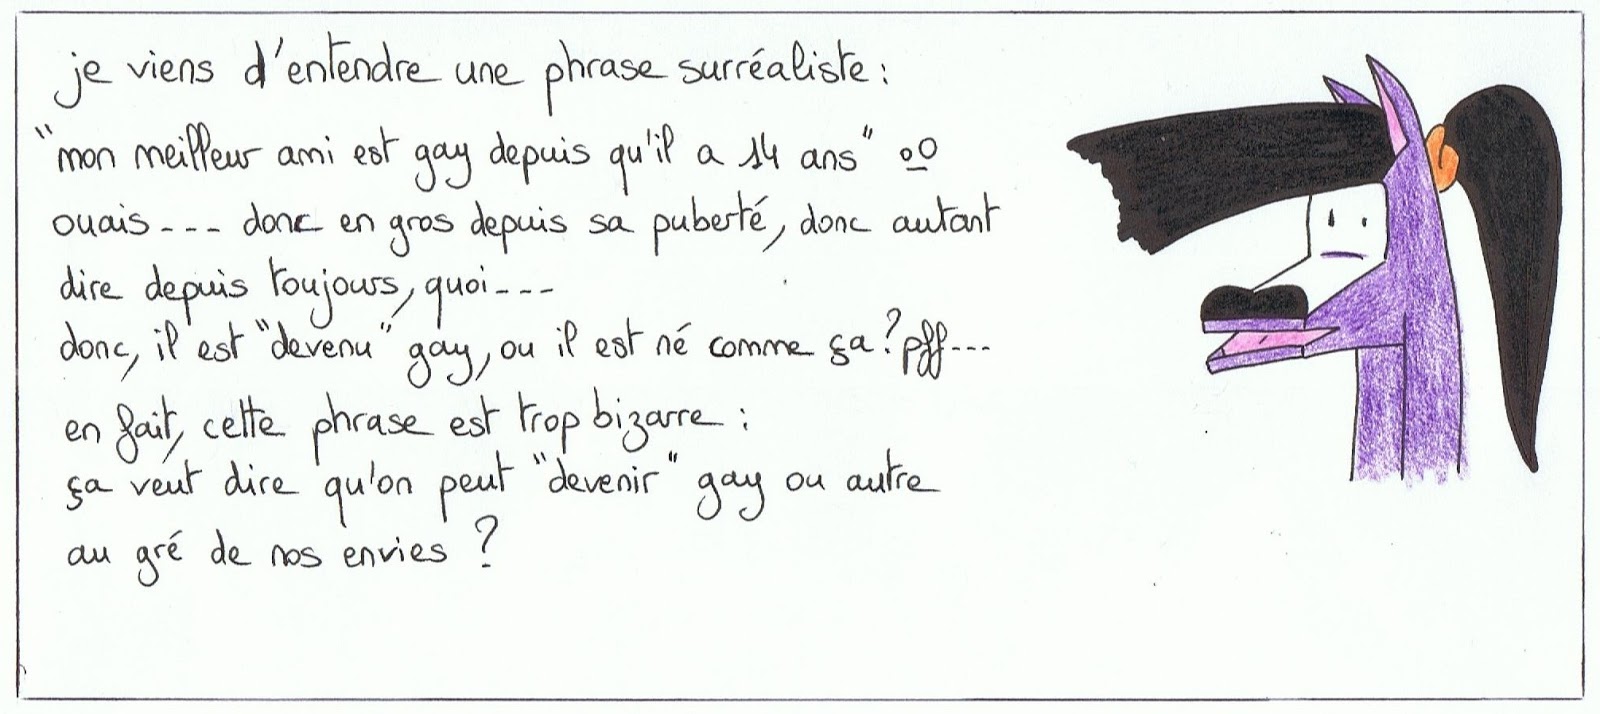 je viens d'entendre une phrase surréaliste :
"mon meilleur ami est gay depuis qu'il a 14 ans" oO
ouais--- donc en gros depuis sa puberté, donc autant
dire depuis toujours, quoi---
donc, il est "devenu" gay, ou il est né comme ça ? pff---
en fait, cette phrase est trop bizarre :
ça veut dire qu'on peut "devenir" gay ou autre
au gré de nos envies ?